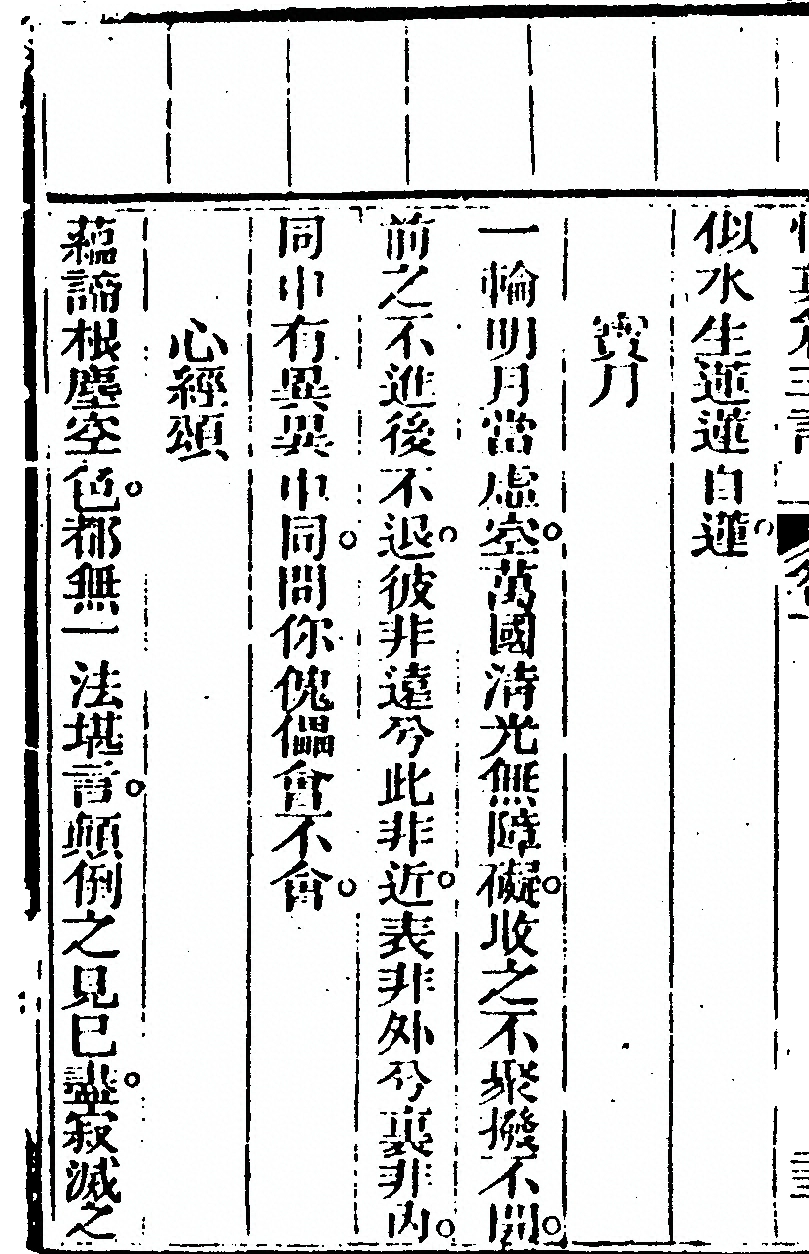 似水生蓮蓮自蓮。
寶月
一輪明月當虛空。萬國清光無障礙。收之不聚撥不開。
前之不進後不退。彼非遠兮此非近。表非外兮裏非內。
同中有異異中同。問你傀儡會不會。
心經頌
蘊諦根塵空色。都無一法堪言。顛倒之見已盡。寂滅之